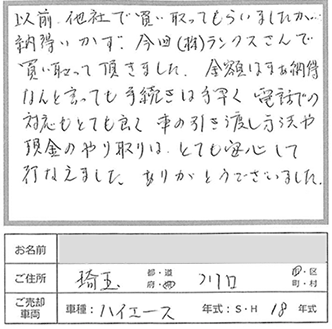 以前、他社で買い取ってもらいましたが、
納得いかず、今回(株)ランクスさんで
買い取って頂きました。金額はまぁ納得
なんと言っても手続きは手早く電話での
対応もとても良く車の引き渡し方法や
現金のやり取りは、とても安心して
行なえました。ありがとうございました。
お名前
ご住所 埼玉 都・道 府・県 川口 市・区 町・村
ご売却車両 車種:ハイエース 年式:S・H 18 年式